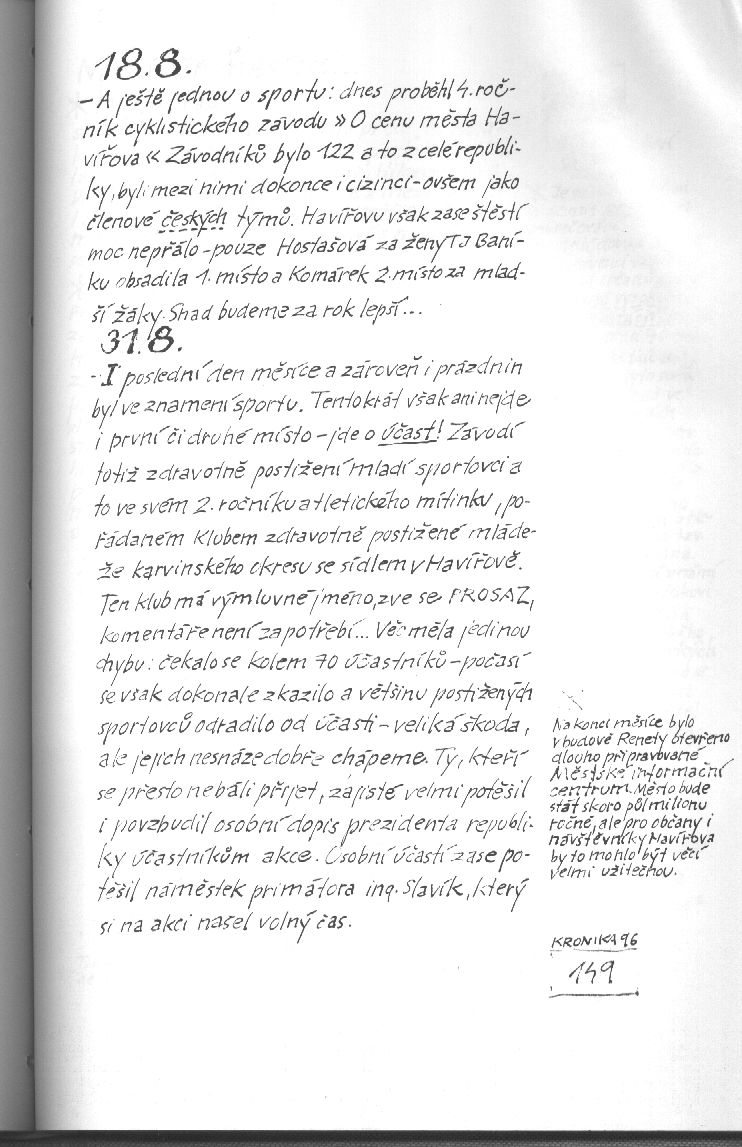 18.8.
- A ještě jednou o sportu: dnes proběhl 4. roč-
ník cyklistického závodu » O cenu města Ha-
vířova « Závodníků bylo 122 a to z celé republi-
ky, byli mezi nimi dokonce i cizinci - ovšem jako
členové českých týmů. Havířovu však zase štěstí
moc nepřálo - pouze Hostašová za ženy TJ Baní-
ku obsadila 1. místo a Komárek 2. místo za mlad-
ší žáky. Snad budeme za rok lepší...
31.8.
- I poslední den měsíce a zároveň i prázdnin
byl ve znamení sportu. Tentokrát však ani nejde
i první či druhé místo - jde o účast! Závodí
totiž zdravotně postižení mladí sportovci a
to ve svém 2. ročníku atletického mítinku, po-
řádaném Klubem zdravotně postižené mláde-
že karvinského okresu se sídlem v Havířově.
Ten klub má výmluvné jméno, zve se PROSAZ,
komentáře není zapotřebí... Věc měla jedinou
chybu: čekalo se kolem 70 účastníků - počasí
se však dokonale zkazilo a většinu postižených
sportovců odradilo od účasti - veliká škoda,
ale jejich nesnáze dobře chápeme. Ty, kteří
se přesto nebáli přijet, zajisté velmi potěšil
i povzbudil osobní dopis prezidenta republi-
ky účastníkům akce. Osobní účastí zase po-
těšil náměstek primátora ing. Slavík, který
si na akci našel volný čas.
Na konci měsíce bylo
v budově Renety otevřeno
dlouho připravované
Městské informační
centrum. Město bude
stát skoro půl milionu
ročně, ale pro občany i
návštěvníky Havířova
by to mohlo být věcí
velmi užitečnou.
KRONIKA 96
149